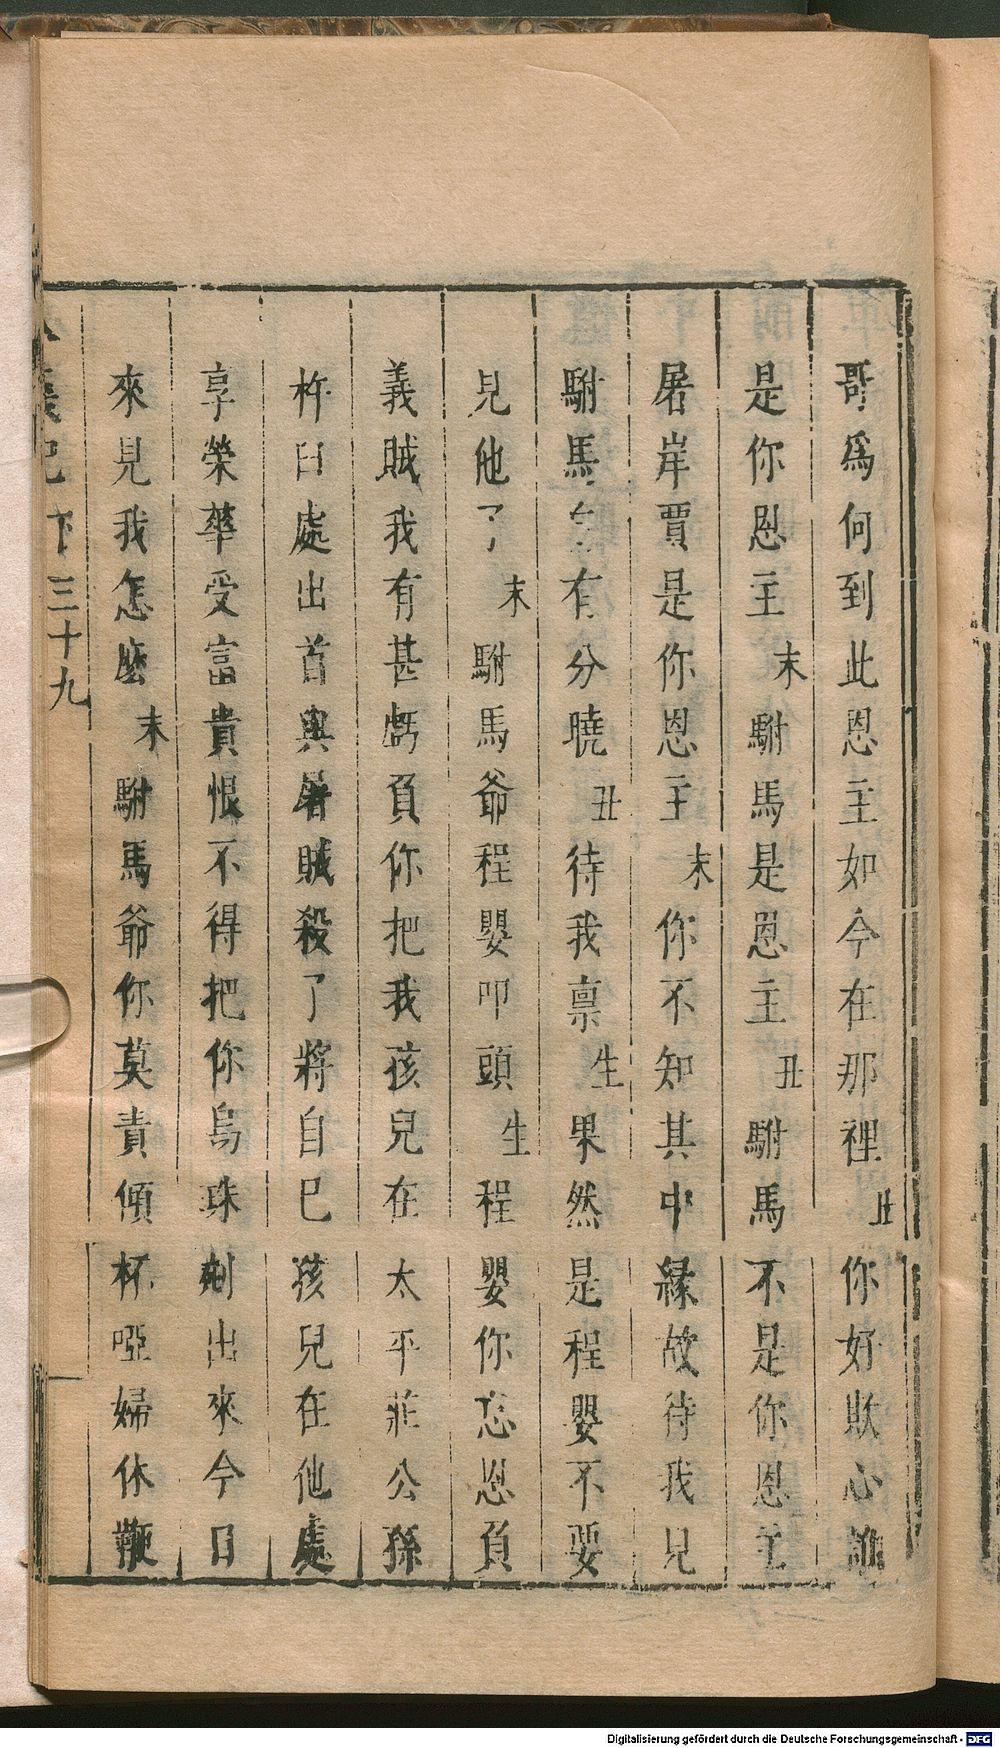 哥爲何到此恩主如今在那裡丑你好欺心誰
是你恩主末駙馬是恩主丑駙馬不是你恩主
屠岸賈是你恩主末你不知其中緣故待我見
駙馬自有分曉丑待我禀生果然是程嬰不要
見他了末駙馬爺程嬰叩頭生程嬰你忘恩負
義賊我有甚虧負你把我孩兒在太平莊公孫
杵臼處出首與屠賊殺了將自己孩兒在他處
享榮華受富貴恨不得把你烏珠剜出來今日
來見我怎麼末駙馬爺你莫責傾杯啞婦休鞭
八義記 下 三十九
Digitalisierung gefördert durch die Deutsche Forschungsgemeinschaft - DFG